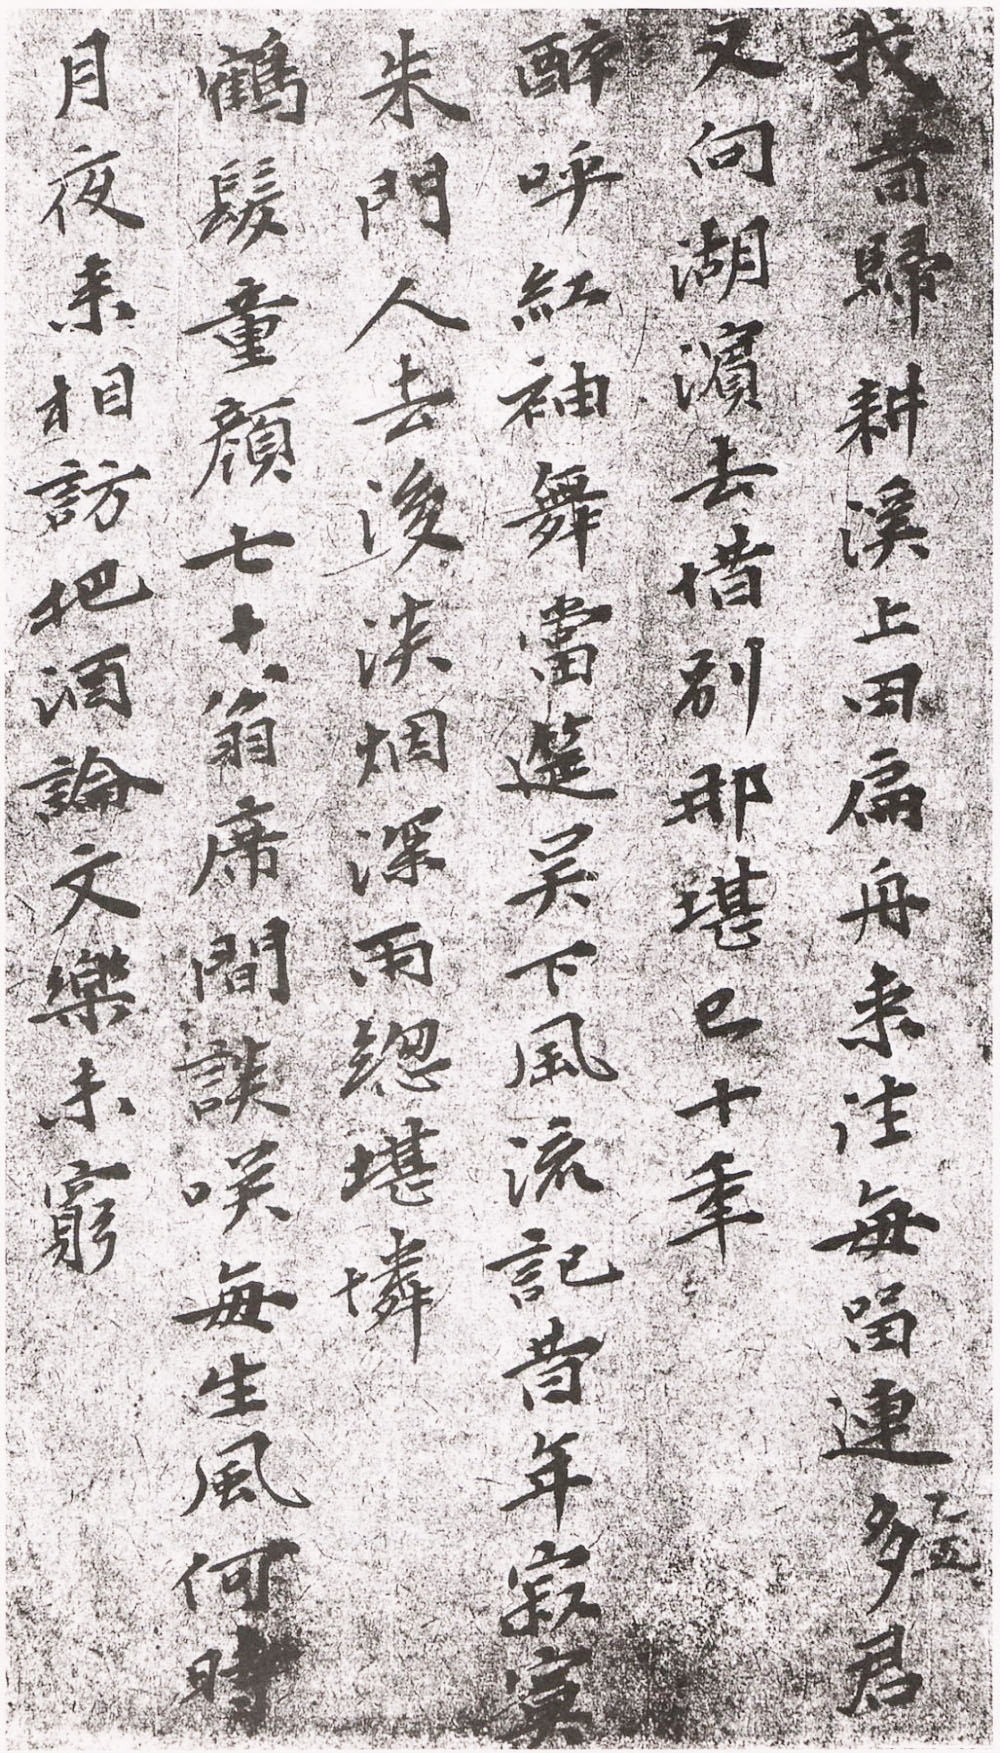 我昔歸耕溪上田扁舟来往每留連多君
又向湖濱去惜別那堪已十年
醉呼紅袖舞當筵吴下風流記昔年寂寞
朱門人去後淡烟深雨緫堪憐
鶴髮童顔七十翁席間談咲每生風何時
月夜来相訪把酒論文樂未窮